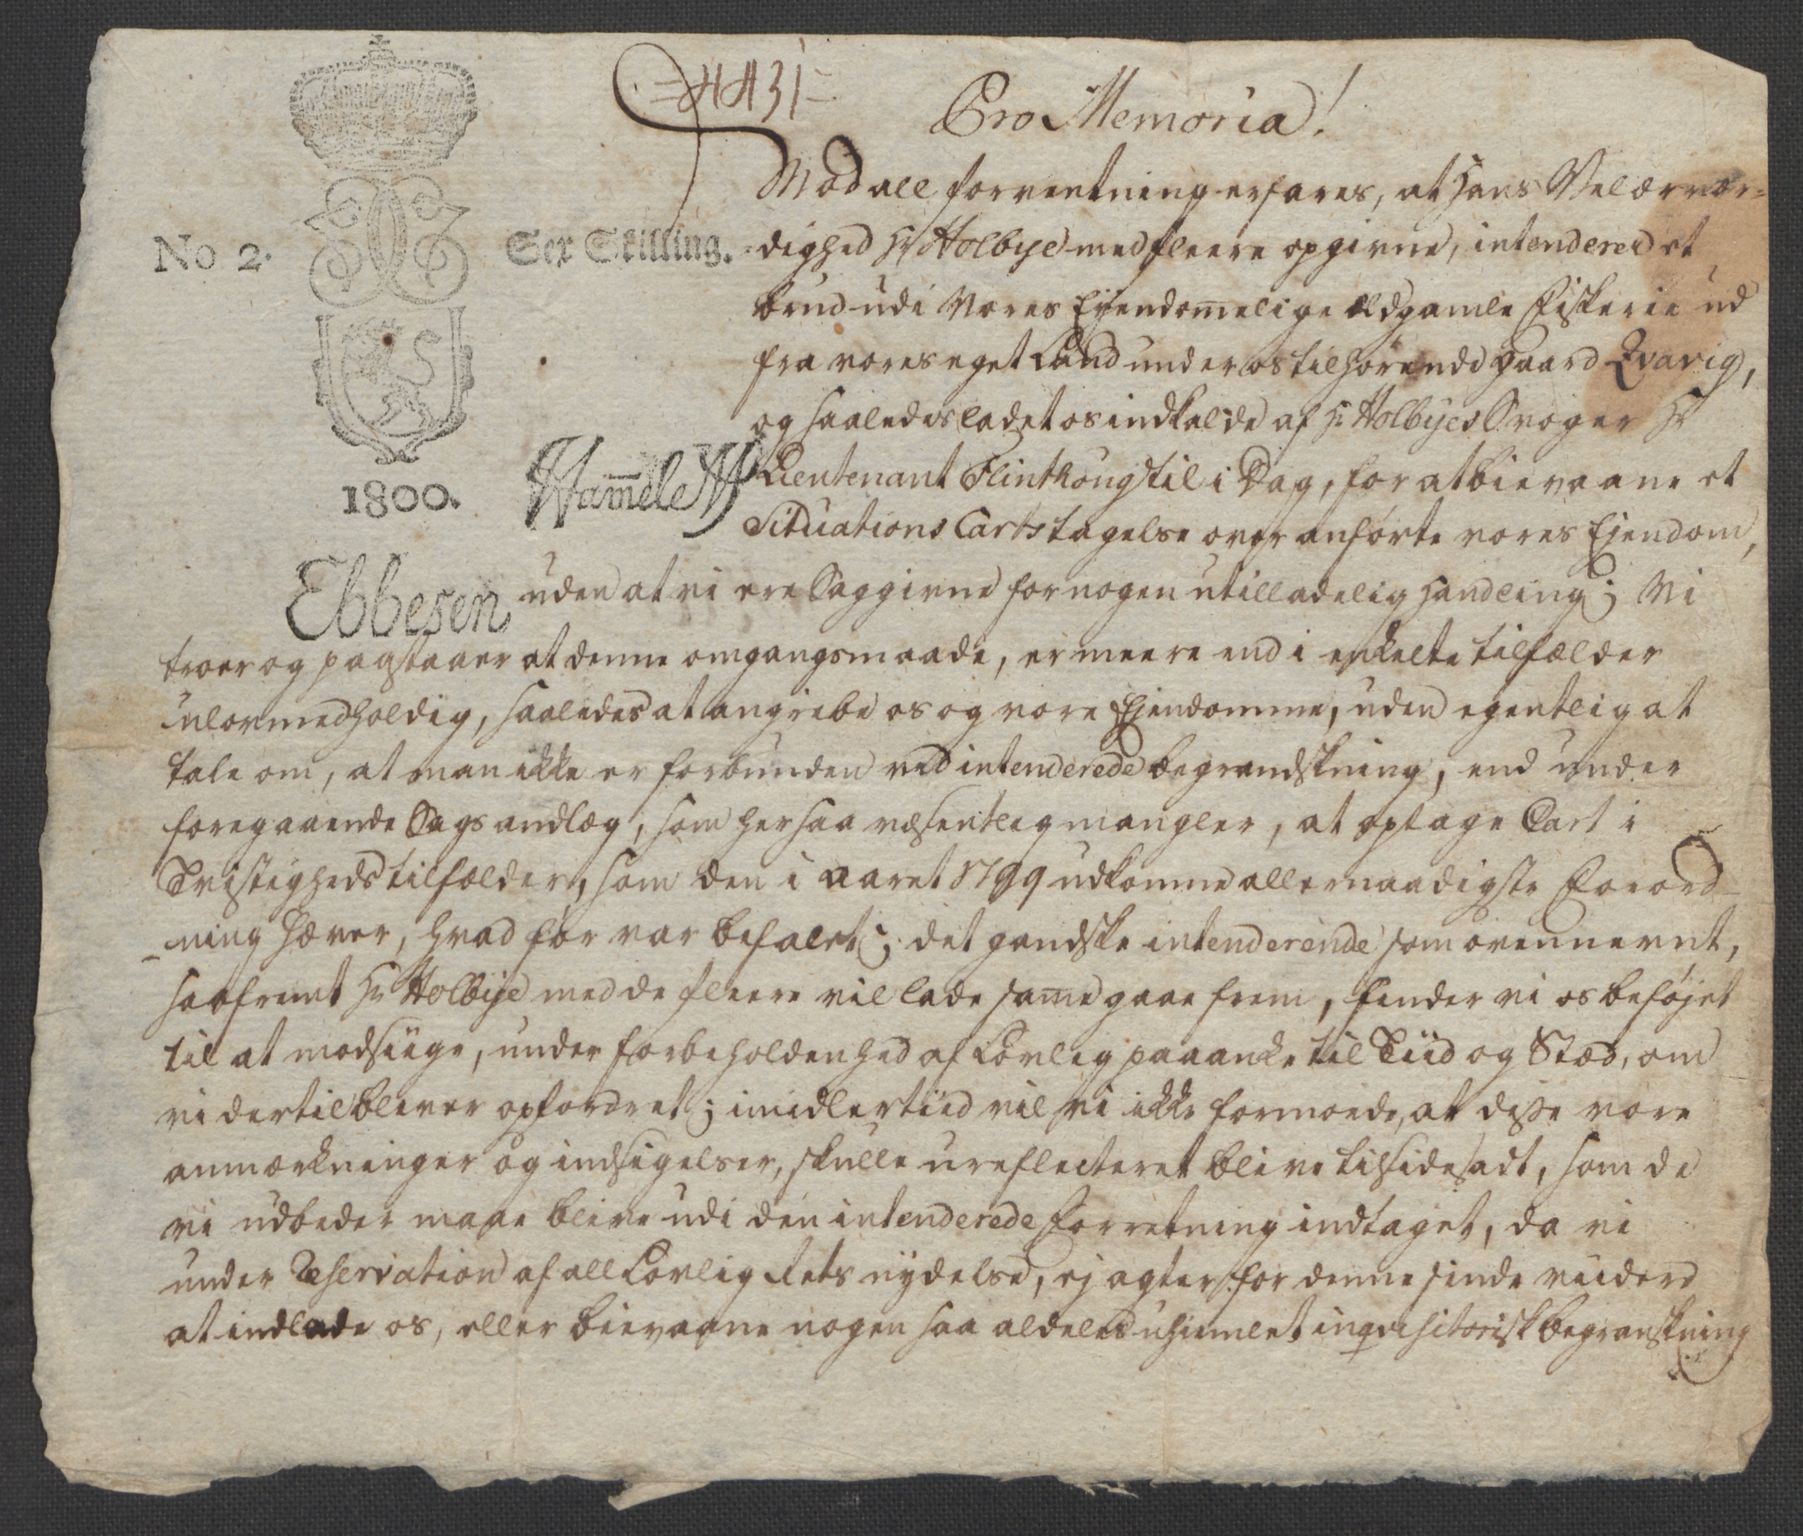 =4431=
Pro Memoria!
Mod all forventning erfares, at Hans Velærvær-
No 2. Sex Skilling. dighed Hr Holbye med fleere opgivne, intenderer et
brud udi Vores Eyendommelige ældgamle Fiskerie ud
fra vores eget Land under os tilhørende gaard Qvarig,
og saaledes ladet os indkalde af Hr Holbyes Svoger Hr
1800. Hamele W Lieutenant Flinthoug til i Dag, for at bievaane et
Situations Carts tagelse over anførte vores Ejendom,
Ebbesen uden at vi ere Saggivne for nogen utilladelig handling; Vi
troer og paastaaer at denne omgangsmaade, er meere end i enkelte tilfælder
ulovmedholdig, saaledes at angribe os og vore Ejendomme, uden egentlig at
tale om, at man ikke er forbunden ved intenderede begrandskning, end under
foregaaende Sags andlæg, som her saa væsentlig mangler, at optage Cart i
Tvistighedstilfælder, som den i aaret 1799 udkomne allernaadigste Forord-
ning hæver, hvad før var befalet; det gandske intenderende som ovennevnt,
saafremt Hr Holbye med de fleere vil lade same gaae frem, finder vi os beføjet
til at modsiige, under forbeholdenhed af Lovlig paaanke til Tiid og Stæd, om
vi dertil bliver opfordret; imidlertiid vil vi ikke formoede, at disse vore
anmærkninger og indsigelser, skulle ureflecteret blive tilsidesadt, som de
vi udbeder maae blive udi den intenderede Forretning indtaget, da vi
under Reservation af all Lovlig Rets nydelse, ej agter for denne sinde viidere
at indlade os, eller bievaane nogen saa aldeles usiemlet inqvisitorisk begranskning